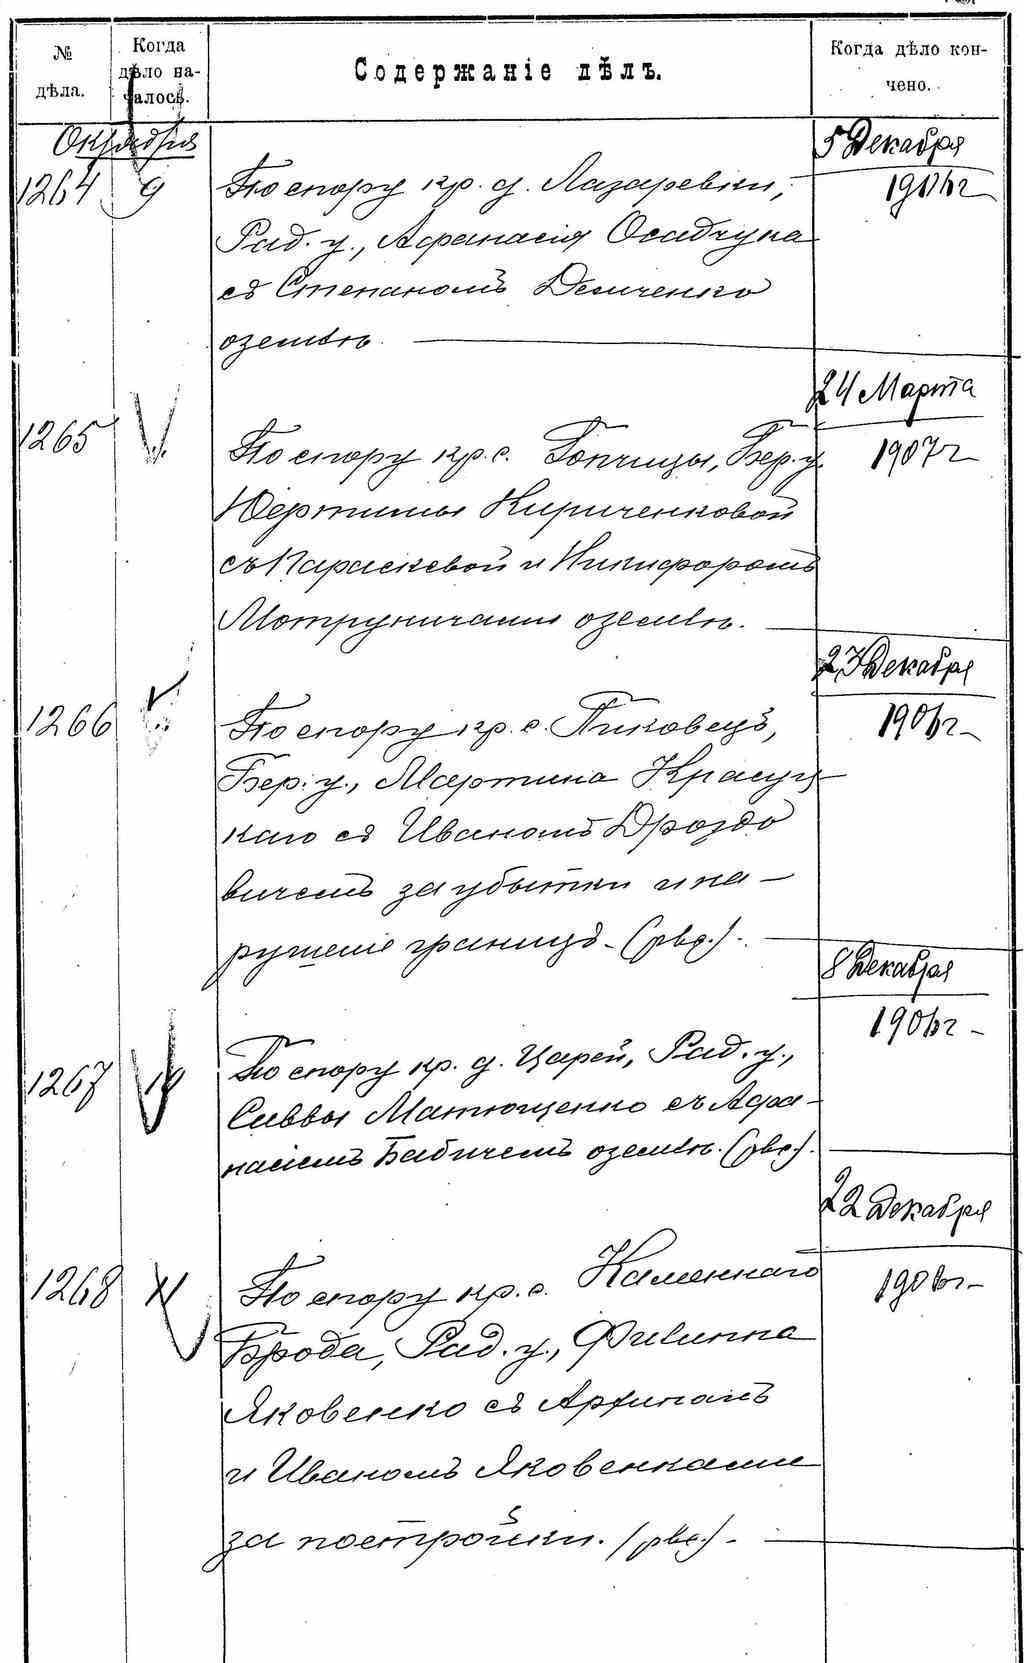 № дѣла.
Когда дѣло на-чалось.
Содержаніе дѣлъ.
Когда дѣло кон-чено.
Октября
5 Декабря
1264 9 По спору кр. д. Лазаревки, 1906 г
Рад. у., Афанасія Осадчука
съ Степаномъ Демченко
о землѣ.
24 Марта
1265 По спору кр. с. Топчицы, Бер. у. 1907 г
Кириченковой
съ Параскевой и Никифоромъ
Мотруничами о землѣ.
23 Декабря
1266 По спору кр. с. Пиковецъ, 1906 г
Бер. у., Мартина Красуц
каго съ Иваномъ Дроздо
вичемъ за убытки и на-
рушеніе границъ. (рвс.).
8 Декабря
1906 г
1267 10 По спору кр. д. Царей, Рад. у.,
Саввы Матющенко съ Афа-
насіемъ Бабичемъ о землѣ. (рвс.).
22 Декабря
1268 11 По спору кр. с. Каменнаго 1906 г
Брода, Рад. у., Филиппа
Яковенко съ Архипомъ
и Иваномъ Яковенками
за постройки. (рвс.).